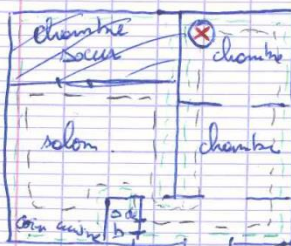 chambre
soeur
chambre
salon
chambre
coin cuisine
sdb